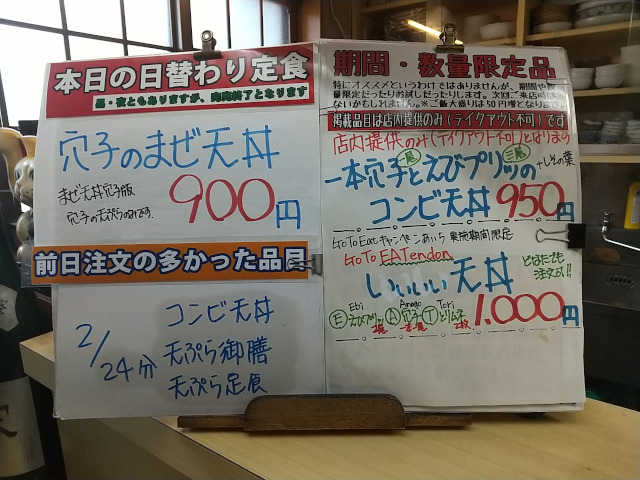 本日の日替わり定食
昼・夜ともありますが、完売終了となります
穴子のまぜ天丼
まぜ天丼穴子版
穴子の天ぷらのみです。
900円
前日注文の多かった品目
2/24分
コンビ天丼
天ぷら御膳
天ぷら定食
期間・数量限定品
特にオススメというわけではありませんが、期間や数
量限定だったり増減しだったりします。次回ご来店時には
ないかもしれません。※ご飯大盛りは50円増となります
掲載品目は店内提供のみ(テイクアウト不可)です
店内提供のみ(テイクアウト不可)となります
一本穴子とえびプリッの
一尾
三尾
+しその葉
コンビ天丼 950円
Go To Eatキャンペーンあいち 実施期間限定
Go To EATendon
いいいい天丼
どなたでも
注文可!!
Ebi
Anago
Tori
Ⓔえびプリッ Ⓐ穴子 Ⓣとりムネ
2尾
一本
2枚
1.000円